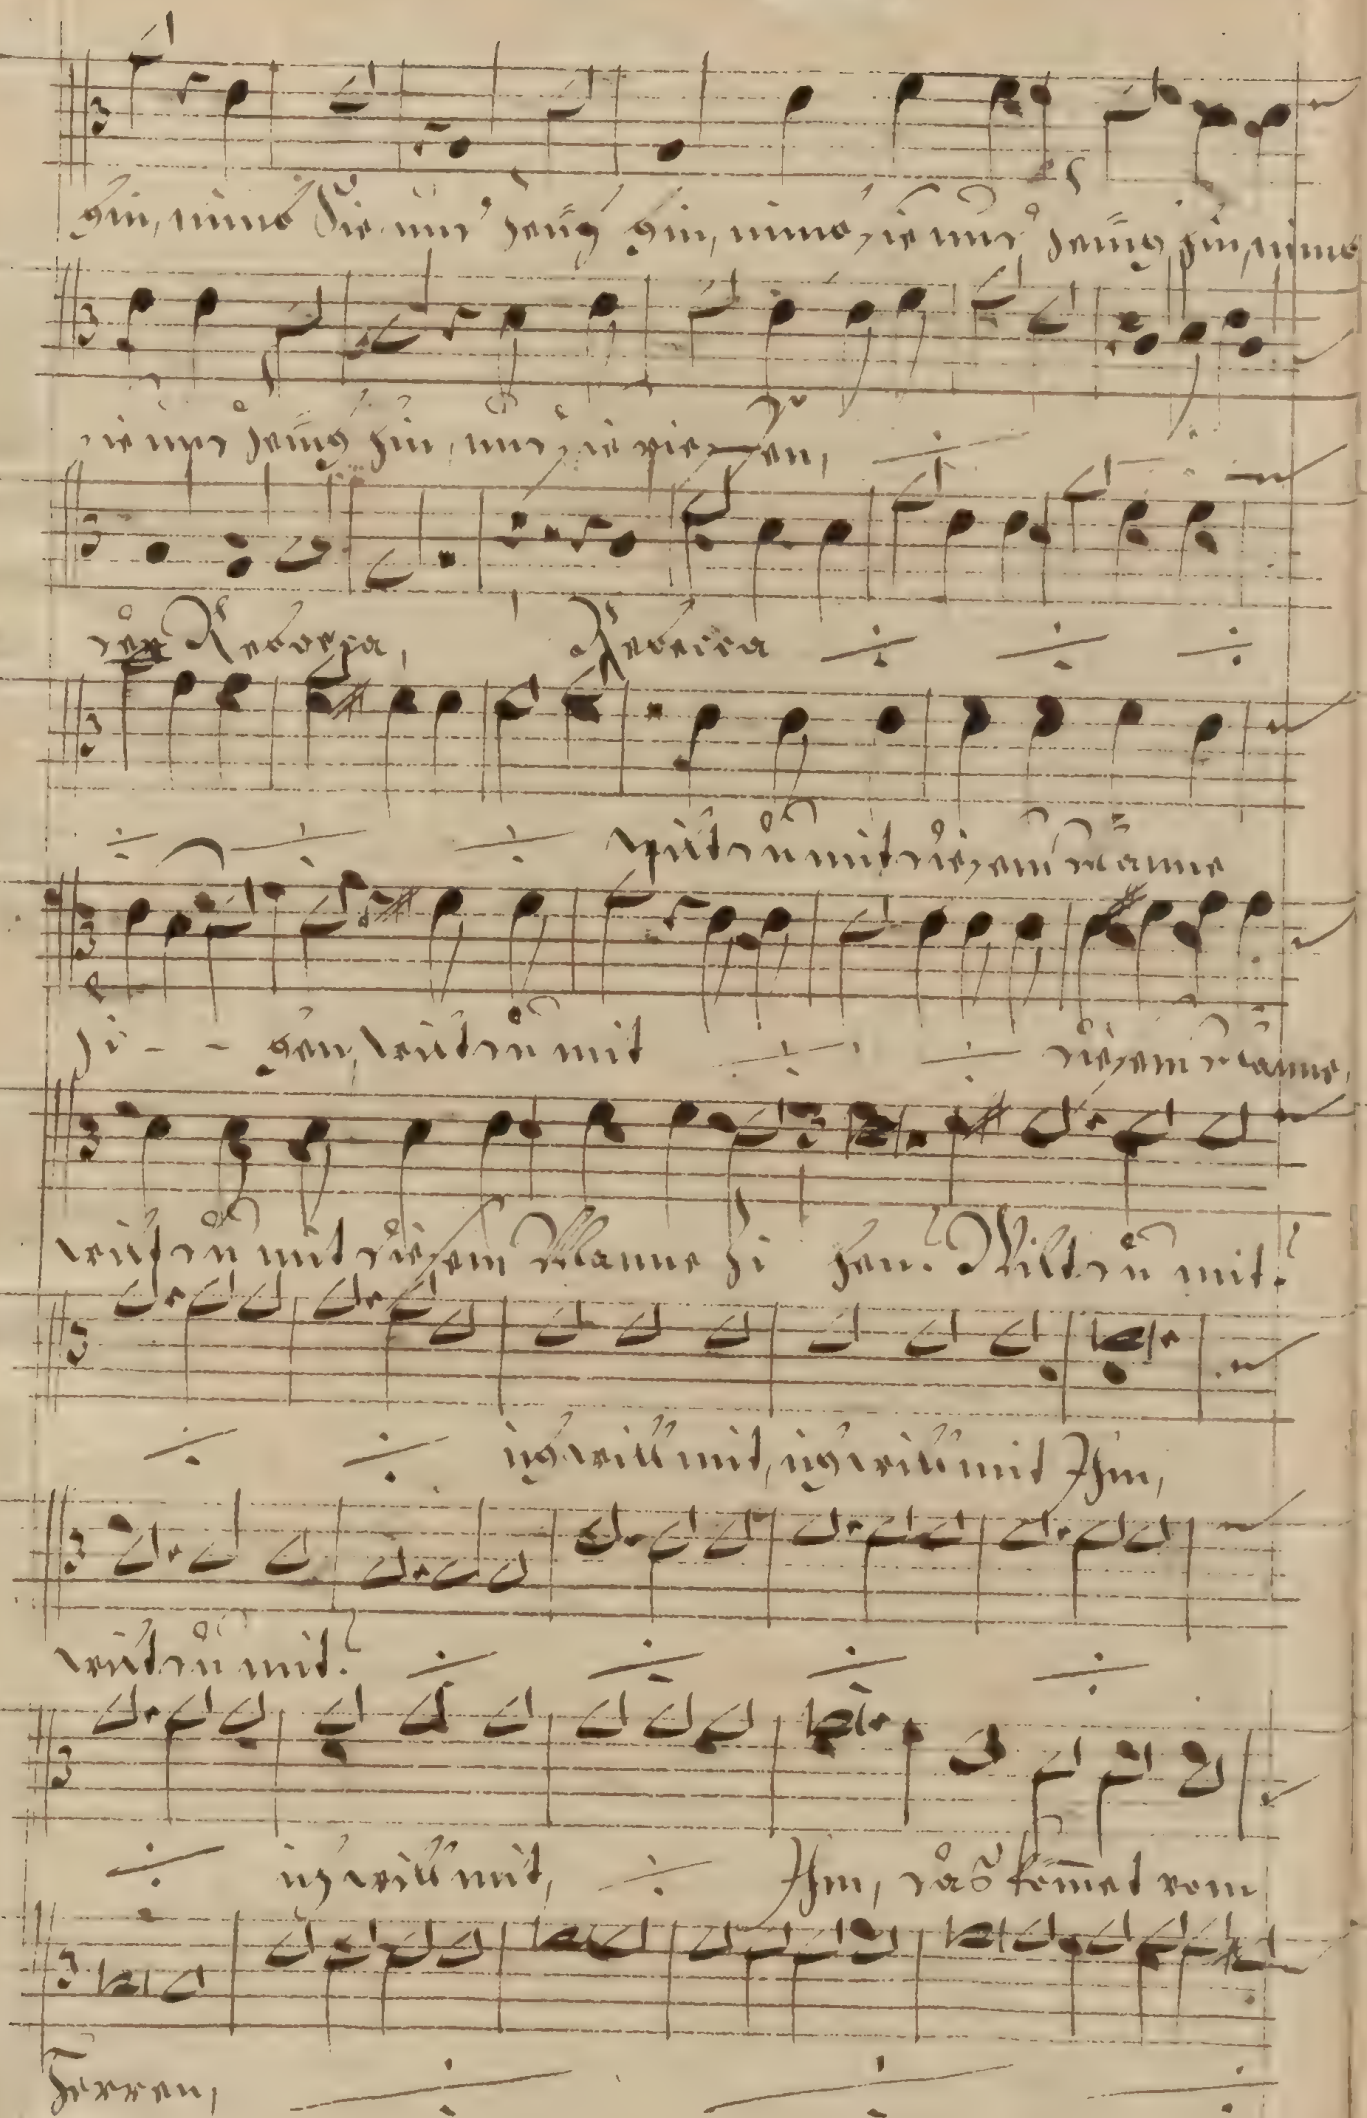 hin, nimb Sie und zeuch hin, nimb sie und zeuch hin, nimb
sie und zeuch hin, und sie rieffen,
der Rebecca, Rebecca
wiltdu mit diesem Manne
zi - - hen, wiltdu mit diesem Manne,
wiltdu mit diesem Manne zi hen? Wiltdu mit?
ich will mit, ich will mit Ihm,
wiltdu mit?
ich will mit, Ihm, das kom̄et vom
Herren,